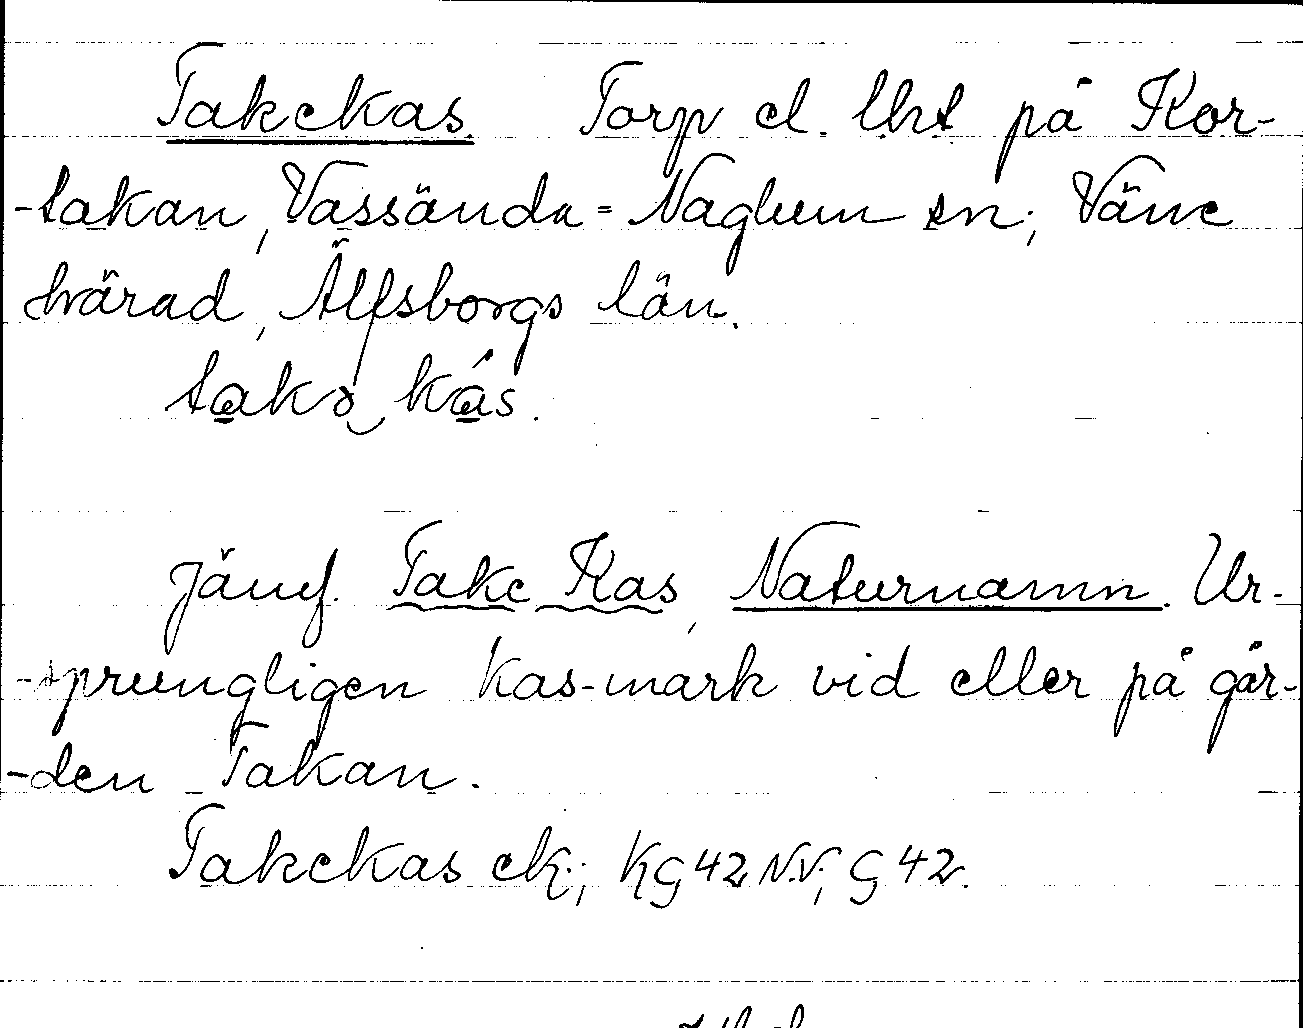 Takekas. Torp el. lht på Kor-
-takan, Vassända-Naglum sn; Väne
härad, Älfsborgs län.
takə kás.
Jämf. Take Kas, Naturnamn. Ur-
-sprungligen kas-mark vid eller på går-
-den Takan.
Takekas ek; KG42 N.V; G 42.